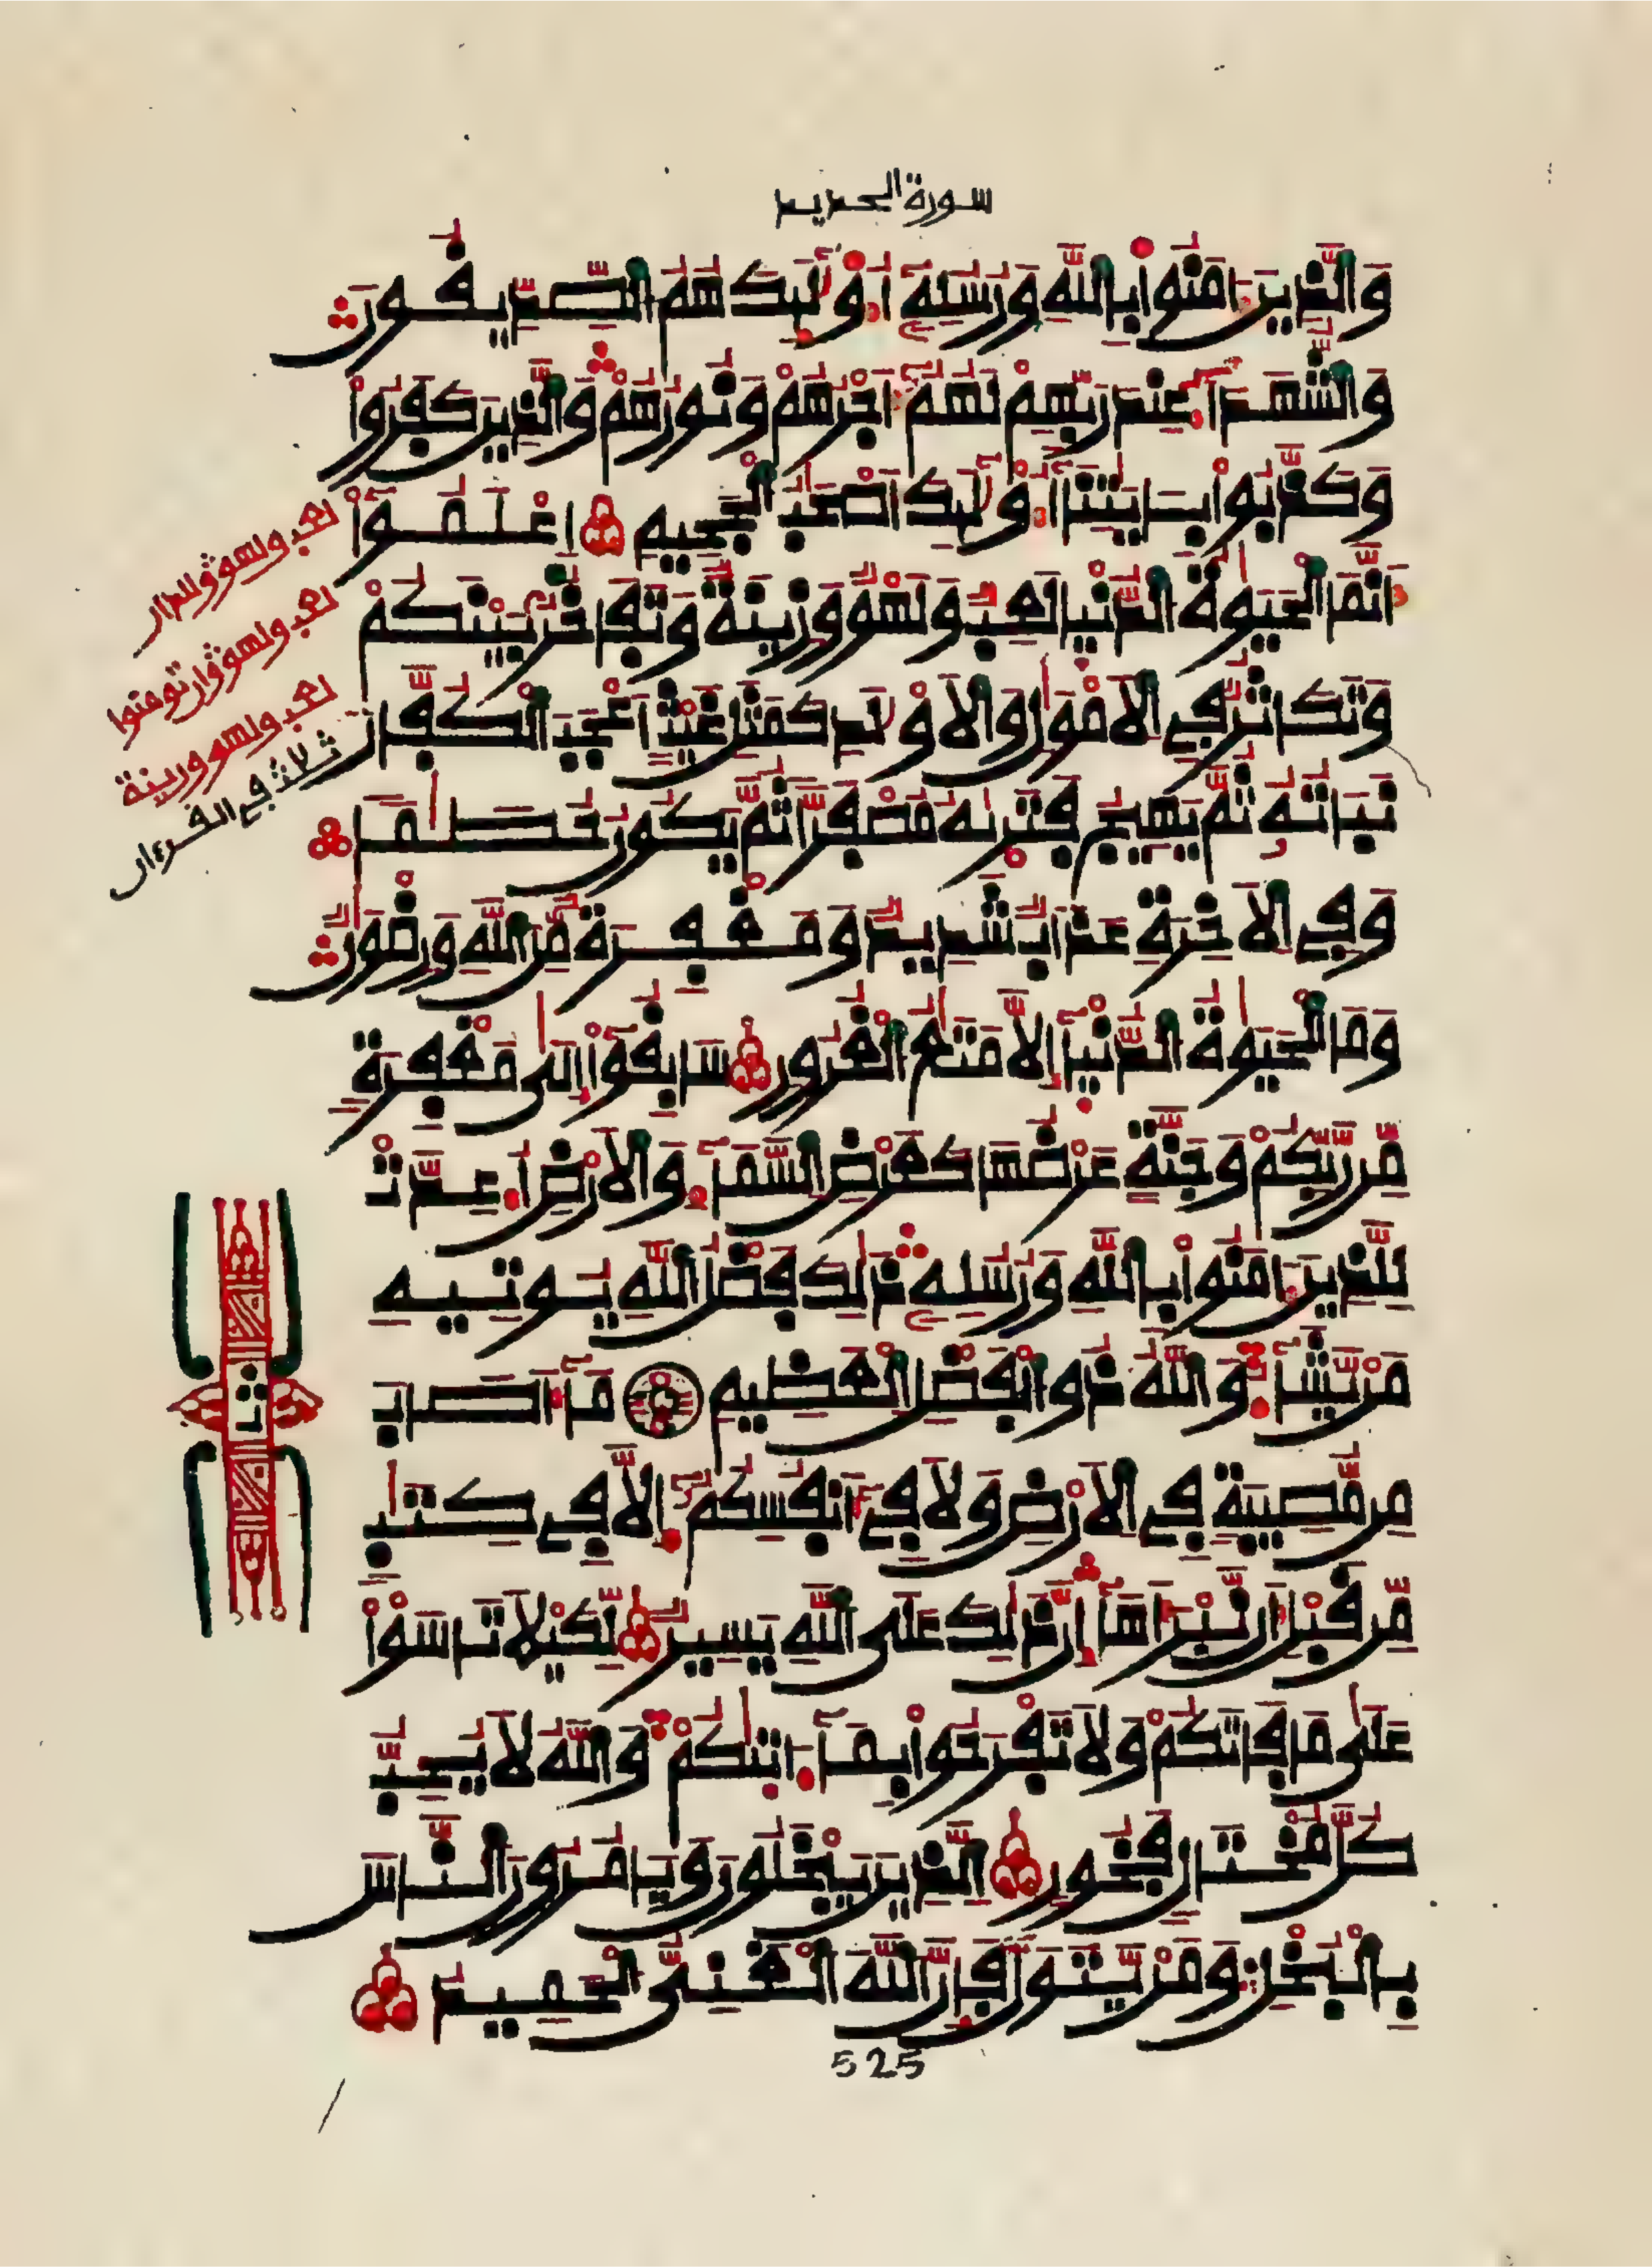 سورة الحديد
وَالذِينَ ءَامَنُواْ بِاللَّهِ وَرُسُلِهِۦٓ أُوْلَٰٓئِكَ هُمُ الصِّدِّيقُونَۖ
وَالشُّهَدَآءُ عِندَ رَبِّهِمْ لَهُمُۥٓ أَجْرُهُمْ وَنُورُهُمْۖ وَالذِينَ كَفَرُواْ
وَكَذَّبُواْ بِـَٔايَٰتِنَآ أُوْلَٰٓئِكَ أَصْحَٰبُ الْجَحِيمِ اِعْلَمُوٓاْ
أَنَّمَا الْحَيَوٰةُ الدُّنْيَا لَعِبٌ وَلَهْوٌ وَزِينَةٌ وَتَفَاخُرٌ بَيْنَكُمْ
وَتَكَاثُرٌ فِے الْأَمْوَٰلِ وَالْأَوْلَٰدِ كَمَثَلِ غَيْثٍ أَعْجَبَ الْكُفَّارَ
نَبَاتُهُۥ ثُمَّ يَهِيجُ فَتَرَىٰهُ مُصْفَرّاً ثُمَّ يَكُونُ حُطَٰماً
وَفِے الْأٓخِرَةِ عَذَابٌ شَدِيدٌ وَمَغْفِرَةٌ مِّنَ اللَّهِ وَرِضْوَٰنٌۖ
وَمَا الْحَيَوٰةُ الدُّنْيَآ إِلَّا مَتَٰعُ الْغُرُورِ سَابِقُوٓاْ إِلَىٰ مَغْفِرَةٍ
مِّن رَّبِّكُمْ وَجَنَّةٍ عَرْضُهَا كَعَرْضِ السَّمَآءِ وَالْأَرْضِ أُعِدَّتْ
لِلذِينَ ءَامَنُواْ بِاللَّهِ وَرُسُلِهِۦۖ ذَٰلِكَ فَضْلُ اللَّهِ يُوتِيهِ
مَنْ يَّشَآءُۖ وَاللَّهُ ذُو الْفَضْلِ الْعَظِيمِ مَآ أَصَابَ
مِن مُّصِيبَةٍ فِے الْأَرْضِ وَلَا فِےٓ أَنفُسِكُمُۥٓ إِلَّا فِے كِتَٰبٍ
مِّن قَبْلِ أَن نَّبْرَأَهَآۖ إِنَّ ذَٰلِكَ عَلَى اللَّهِ يَسِيرٌ لِّكَيْلَا تَاسَوْاْ
عَلَىٰ مَا فَاتَكُمْ وَلَا تَفْرَحُواْ بِمَآ ءَاتَىٰكُمْۖ وَاللَّهُ لَا يُحِبُّ
كُلَّ مُخْتَالٍ فَخُورٍ الذِينَ يَبْخَلُونَ وَيَامُرُونَ النَّاسَ
بِالْبُخْلِۖ وَمَنْ يَّتَوَلَّ فَإِنَّ اللَّهَ الْغَنِيُّ الْحَمِيدُ
525
لعب ولهو وللدار
لعب ولهو وإن تومنوا
لعب ولهو وزينة
ثلاث في القرءان
ثمن